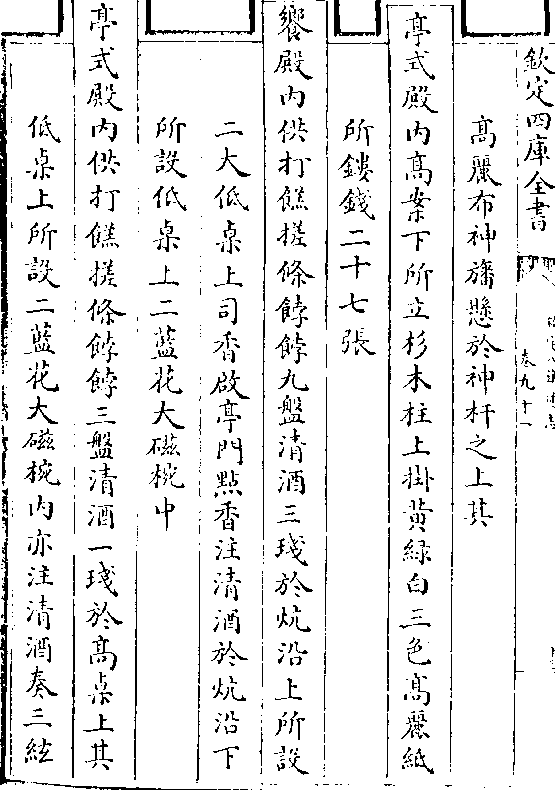 欽定四庫全書
卷九十一
高麗布神旛懸於神杆之上其
亭式殿内高案下所立杉木柱上掛黃緑白三色高麗紙
所鏤錢二十七張
饗殿内供打餻搓條餑餑九盤清酒三琖於炕沿上所設
二大低桌上司香啟亭門點香注清酒於炕沿下
所設低桌上二藍花大磁椀中
亭式殿内供打餻搓條餑餑三盤清酒一琖於高桌上其
低桌上所設二藍花大磁椀内亦注清酒奏三絃